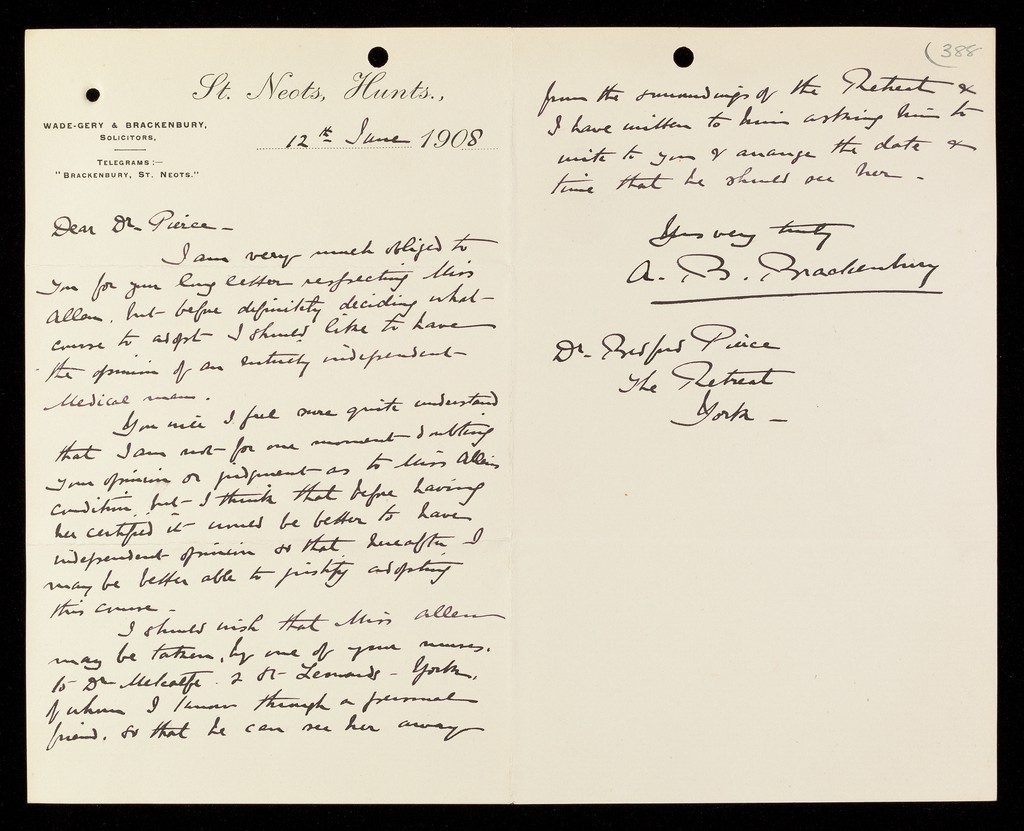 St. Neots, Hunts.,
WADE-GERY & BRACKENBURY,
SOLICITORS,
TELEGRAMS:—
"BRACKENBURY, ST. NEOTS."
12th June 1908
Dear Dr. Pierce –
I am very much obliged to
you for your long letter respecting Miss
Allen, but before definitely deciding what
course to adopt I should like to have
the opinion of an entirely independent
Medical man.
You will I feel sure quite understand
that I am not for one moment doubting
your opinion or judgment as to Miss Allens
condition, but I think that before having
her certified it would be better to have
independent opinion so that hereafter I
may be better able to justify adopting
this course –
I should wish that Miss Allen
may be taken, by one of your nurses,
to Dr Metcalfe 2 St Leonards – York,
of whom I know through a personal
friend, so that he can see her away
(388
from the surroundings of the Retreat &
I have written to him asking him to
write to you & arrange the date &
time that he should see her –
Yours very truly
A. B. Brackenbury
Dr. Bedford Pierce
The Retreat
York –